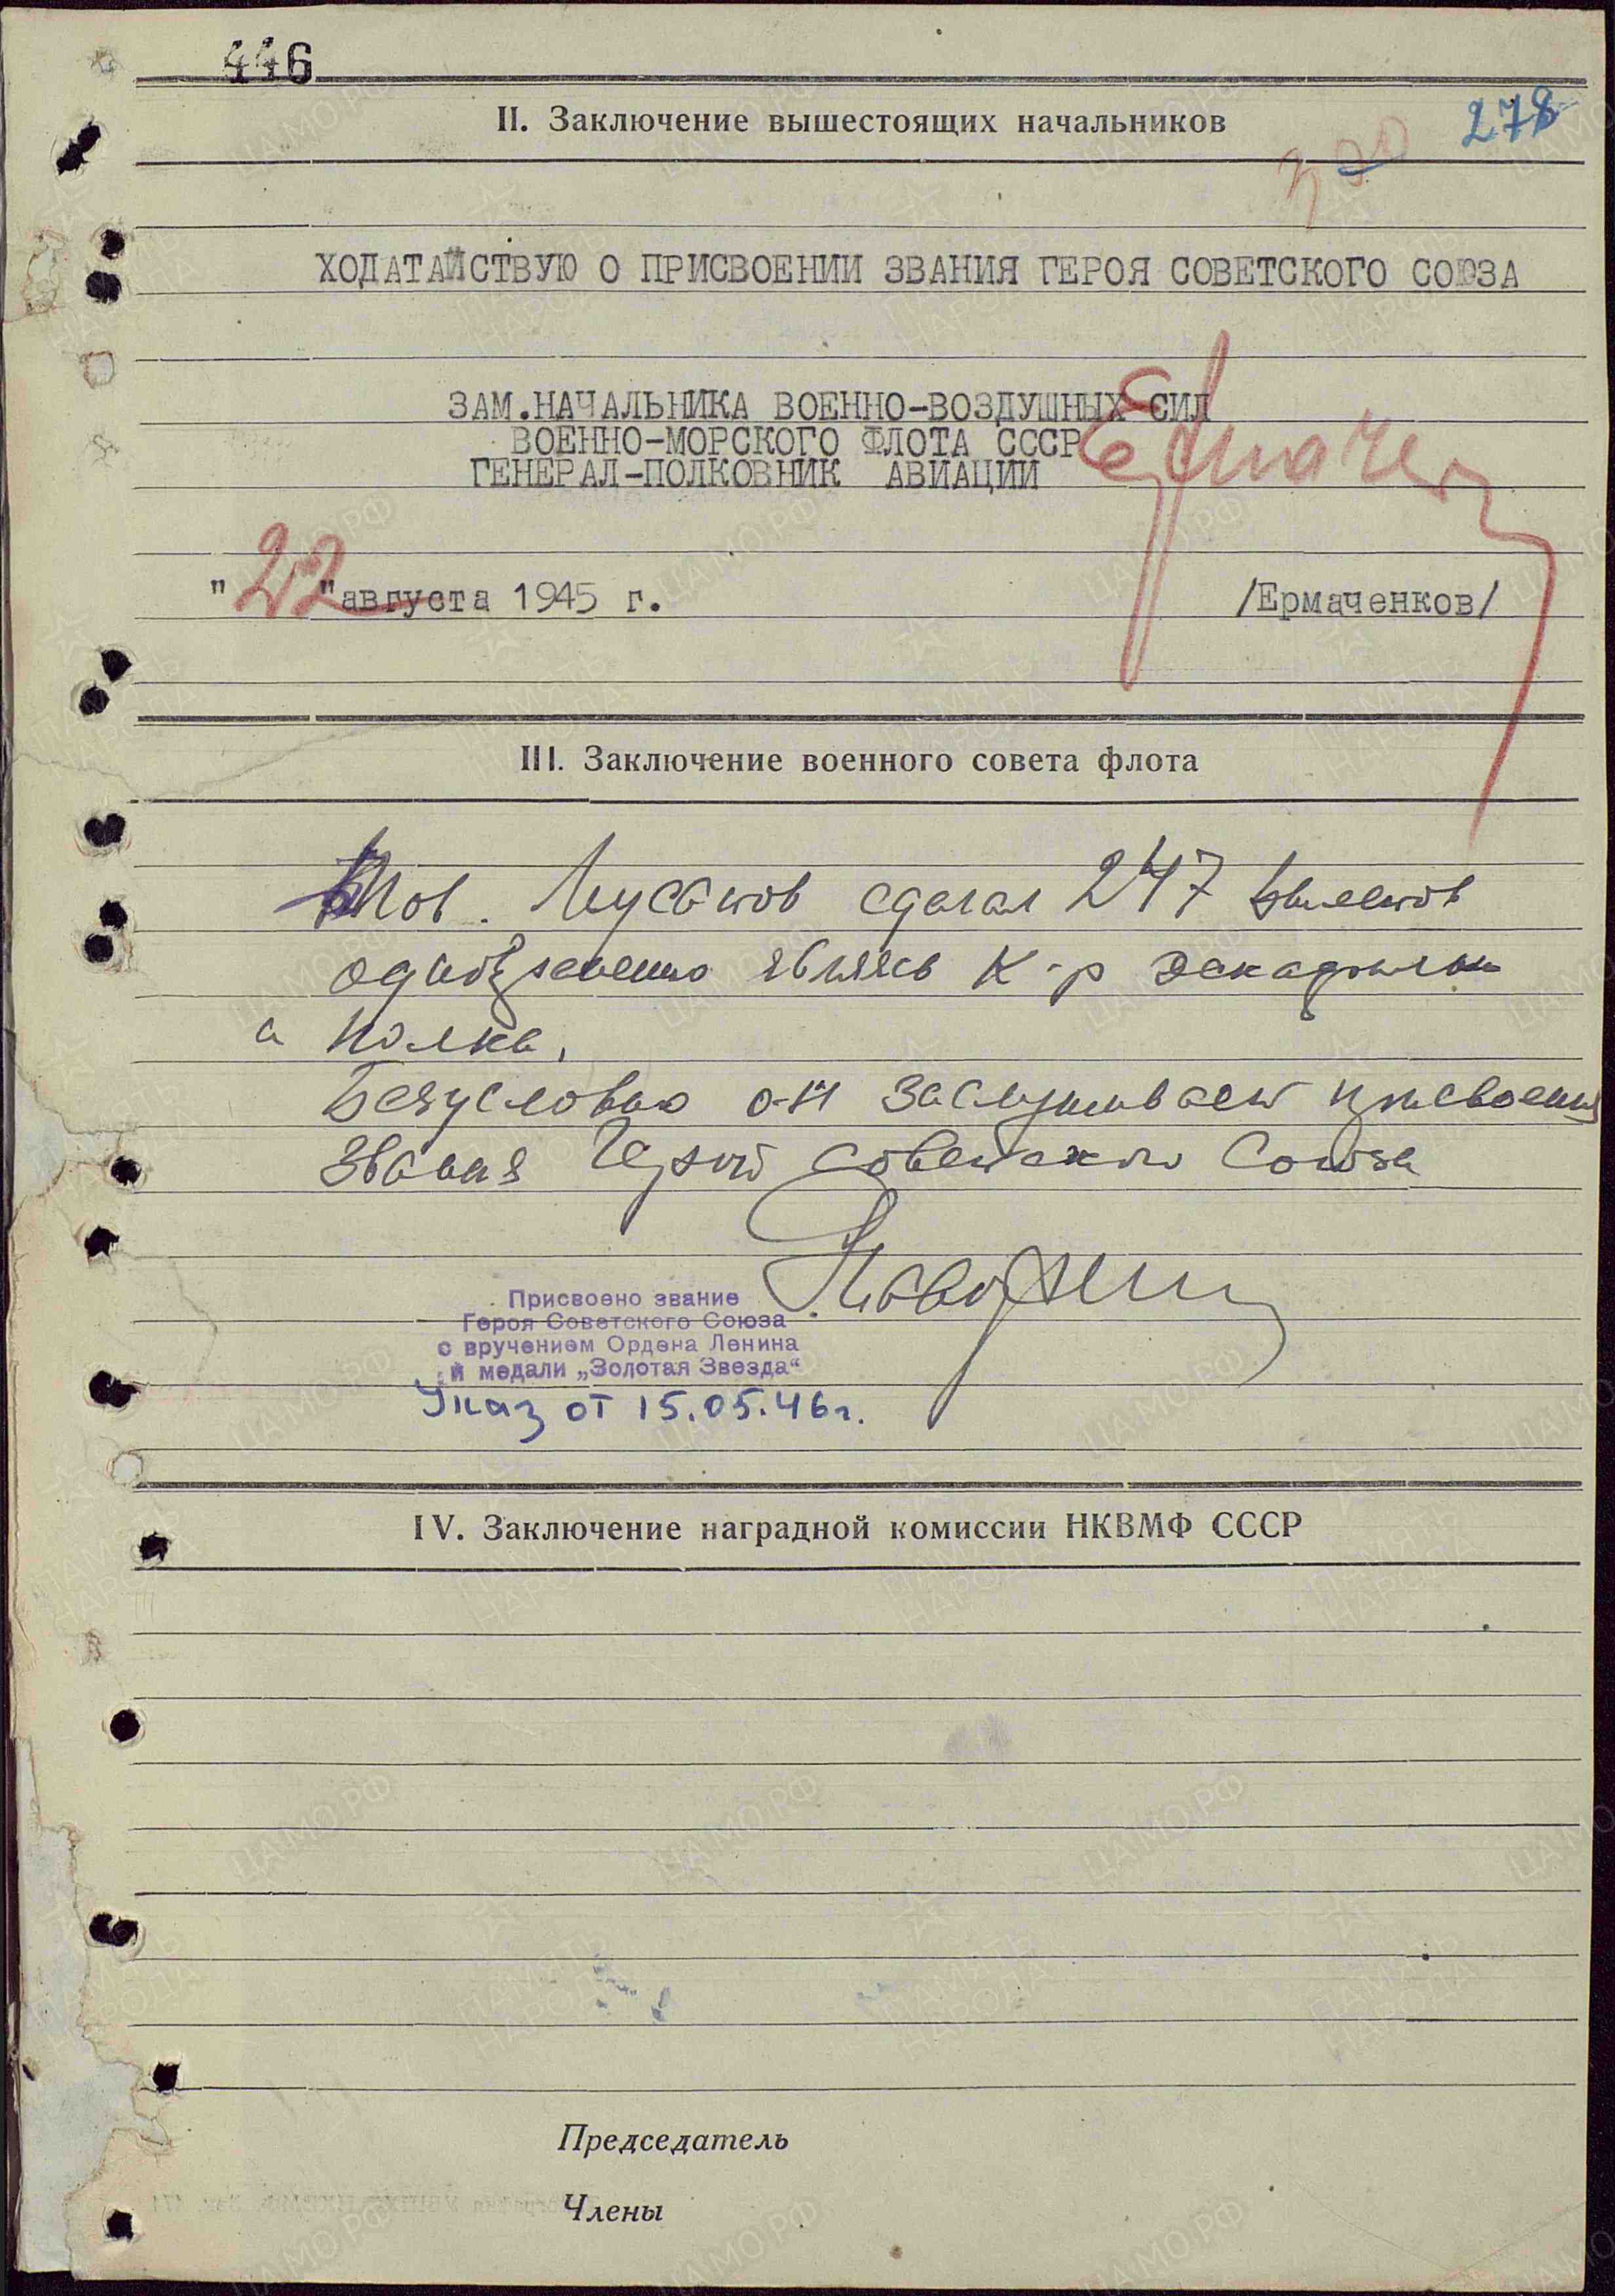 446
II. Заключение вышестоящих начальников
278
ХОДАТАЙСТВУЮ О ПРИСВОЕНИИ ЗВАНИЯ ГЕРОЯ СОВЕТСКОГО СОЮЗА
ЗАМ.НАЧАЛЬНИКА ВОЕННО-ВОЗДУШНЫХ СИЛ
ВОЕННО-МОРСКОГО ФЛОТА СССР
ГЕНЕРАЛ-ПОЛКОВНИК АВИАЦИИ
"22"августа 1945 г.
/Ермаченков/
III. Заключение военного совета флота
Тов. сделал 247 вылетов
являясь к-р эскадрильи
а полка.
Безусловно он заслуживает присвоения
звания Герой Советского Союза
Присвоено звание
Героя Советского Союза
с вручением Ордена Ленина
и медали „Золотая Звезда“
Указ от 15.05.46г.
IV. Заключение наградной комиссии НКВМФ СССР
Председатель
Члены